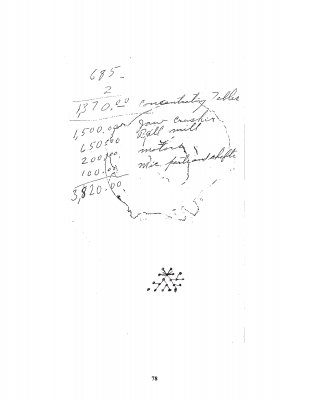 685-
2
1,370.00 Concentrating Tables
1,500.00 Jaw Crusher
650.00 Ball mill
200.00 motors
100.00 misc parts and shafts
3,820.00
78